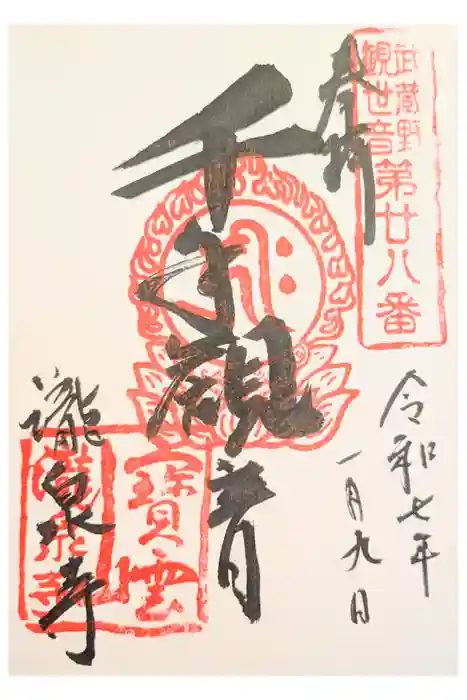 武蔵野
観世音第廿八番
奉拝
令和七年
一月九日
千手観音
寶雲
瀧泉寺
瀧泉寺